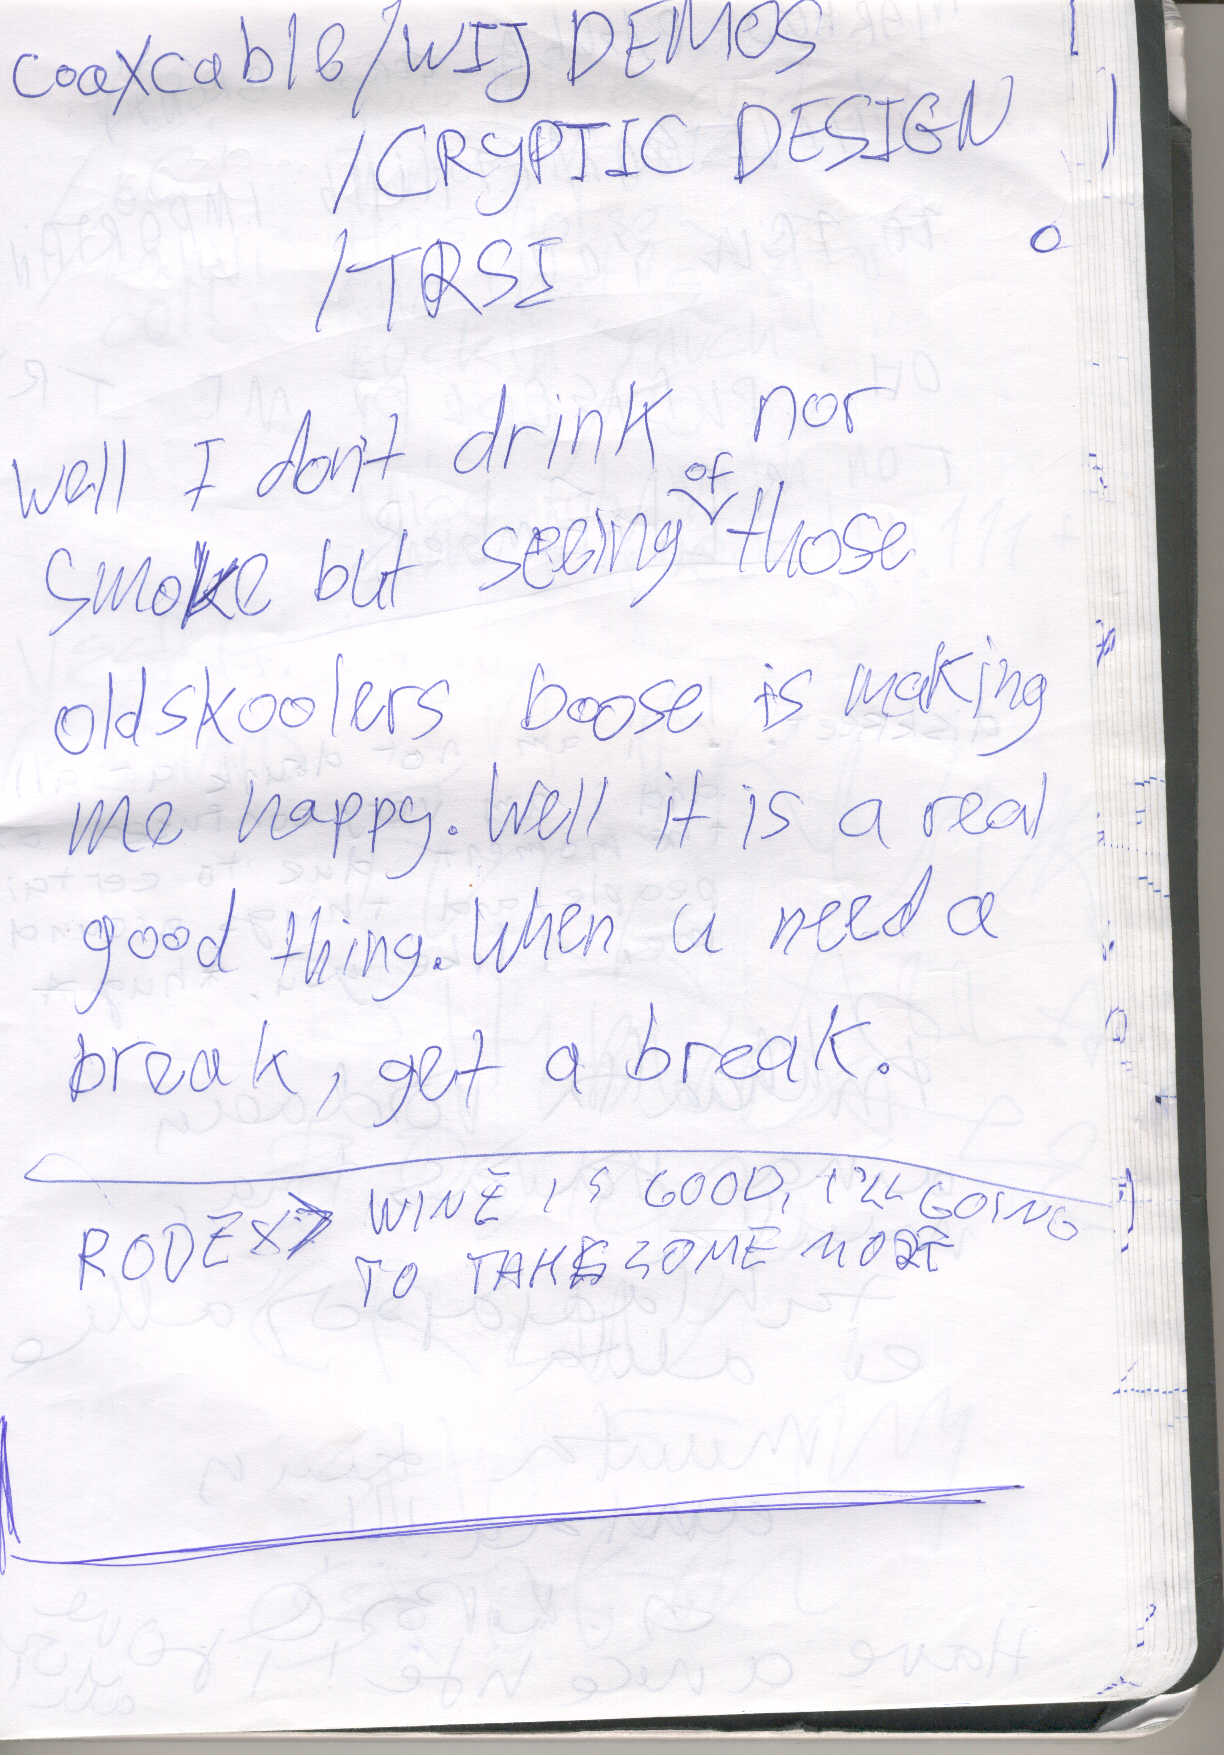 coaxcable/WIJ DEMOS
/CRYPTIC DESIGN
/TRSI
Well I don't drink nor
smoke but seeing of those
oldskoolers boose is making
me happy. Well it is a real
good thing. When u need a
break, get a break.
RODEX> WINE IS GOOD, I'LL GOING
TO TAKE SOME MORE